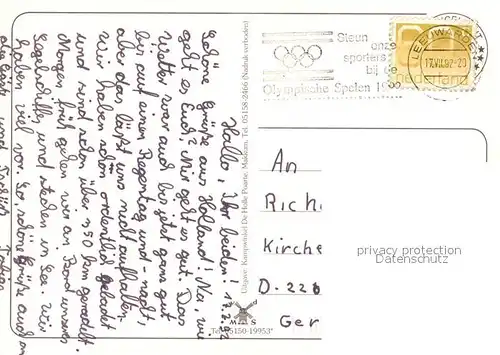 Hallo, Ihr beiden! 17.7.92
Schöne Grüße aus Holland! Na, wie
geht es Euch? Mir geht es gut. Das
Wetter war auch bis jetzt ganz gut
bis auf einen Regentag und -nacht,
aber das läßt uns nicht auffallen.
Wir haben schon ordentlich geradelt
und sind schon über 250 km geradelt.
Morgen früh gehen wir an Bord unseres
und stechen in See. Wir
haben viel vor. So, schöne Grüße auch an
und
Uitgave: Kampwinkel De Holle Poarte, Makkum, Tel. 05158-2466 (Nadruk verboden)
M S
Tel. 05150-19953*
Steun
onze
sporters
bij de
Olympische Spelen 19
LEEUWARDEN
17.VII.92-20
nederland
An
Rich
Kirche
D-228
Ger
privacy protection
Datenschutz